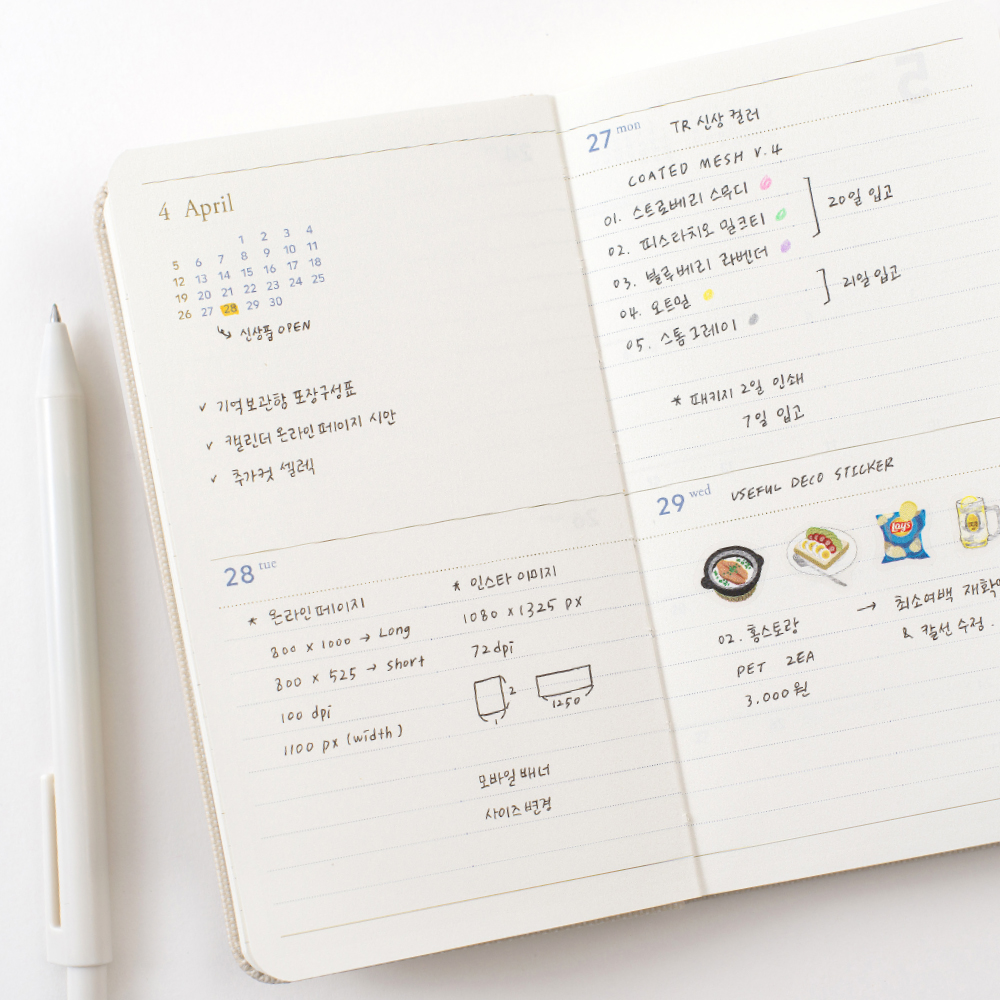 4 April
1 2 3 4
5 6 7 8 9 10 11
12 13 14 15 16 17 18
19 20 21 22 23 24 25
26 27 28 29 30
신상품 OPEN
✓ 기억보관함 포장구성표
✓ 캘린더 온라인페이지 시안
✓ 추가컷 셀렉
27 mon
TR 신상 컬러
COATED MESH V.4
01. 스트로베리 스무디
02. 피스타치오 밀크티
20일 입고
03. 블루베리 라벤더
04. 오트밀
21일 입고
05. 스톰그레이
* 패키지 2일 인쇄
7일 입고
28 tue
* 온라인페이지
800 x 1000 → Long
800 x 525 → short
100 dpi
1100 px (width)
* 인스타 이미지
1080 x 1325 px
72dpi
2
1
1250
모바일 배너
사이즈변경
29 wed
USEFUL DECO STICKER
Lay's
02. 홈스토랑
PET 2EA
3,000원
→ 최소여백 재확인
& 칼선 수정.